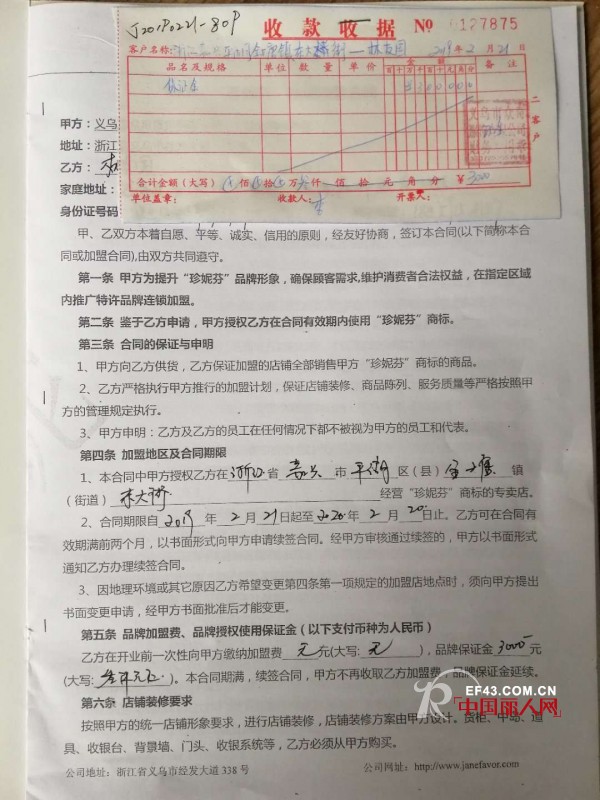 J201P0221-80P
收款收据 № 0127875
客户名称: 2019年2月21日
品名及规格 单位 数量 单价 金额 备注
百十万千百十元角分
保证金 300000
二客户
合计金额(大写) 佰 拾 万 仟 佰 拾 元 角 分 ¥3000
单位盖章: 收款人: 开票人:
甲方:义乌
地址:浙江
乙方:
家庭地址:
身份证号码
甲、乙双方本着自愿、平等、诚实、信用的原则,经友好协商,签订本合同(以下简称本合
同或加盟合同),由双方共同遵守。
第一条 甲方为提升“珍妮芬”品牌形象,确保顾客需求,维护消费者合法权益,在指定区域
内推广特许品牌连锁加盟。
第二条 鉴于乙方申请,甲方授权乙方在合同有效期内使用“珍妮芬”商标。
第三条 合同的保证与申明
1、甲方向乙方供货,乙方保证加盟的店铺全部销售甲方“珍妮芬”商标的商品。
2、乙方严格执行甲方推行的加盟计划,保证店铺装修、商品陈列、服务质量等严格按照甲
方的管理规定执行。
3、甲方申明:乙方及乙方的员工在任何情况下都不被视为甲方的员工和代表。
第四条 加盟地区及合同期限
1、本合同中甲方授权乙方在浙江省 嘉兴 市 平湖 区(县) 镇
(街道) 经营“珍妮芬”商标的专卖店。
2、合同期限自 2019 年 2 月 21 日起至 2020 年 2 月 20 日止。乙方可在合同有
效期满前两个月,以书面形式向甲方申请续签合同。经甲方审核通过续签的,甲方以书面形式
通知乙方办理续签合同。
3、因地理环境或其它原因乙方希望变更第四条第一项规定的加盟店地点时,须向甲方提出
书面变更申请,经甲方书面批准后才能变更。
第五条 品牌加盟费、品牌授权使用保证金(以下支付币种为人民币)
乙方在开业前一次性向甲方缴纳加盟费 元 元(大写: 元 ),品牌保证金 3000 元
(大写: 叁仟元正 )。本合同期满,续签合同,甲方不再收取乙方加盟费,品牌保证金延续。
第六条 店铺装修要求
按照甲方的统一店铺形象要求,进行店铺装修,店铺装修方案由甲方设计。货柜、中岛、道
具、收银台、背景墙、门头、收银系统等,乙方必须从甲方购买。
公司地址:浙江省义乌市经发大道 338 号 公司网址:http://www.janefavor.com
EF43.COM.CN
中国丽人网